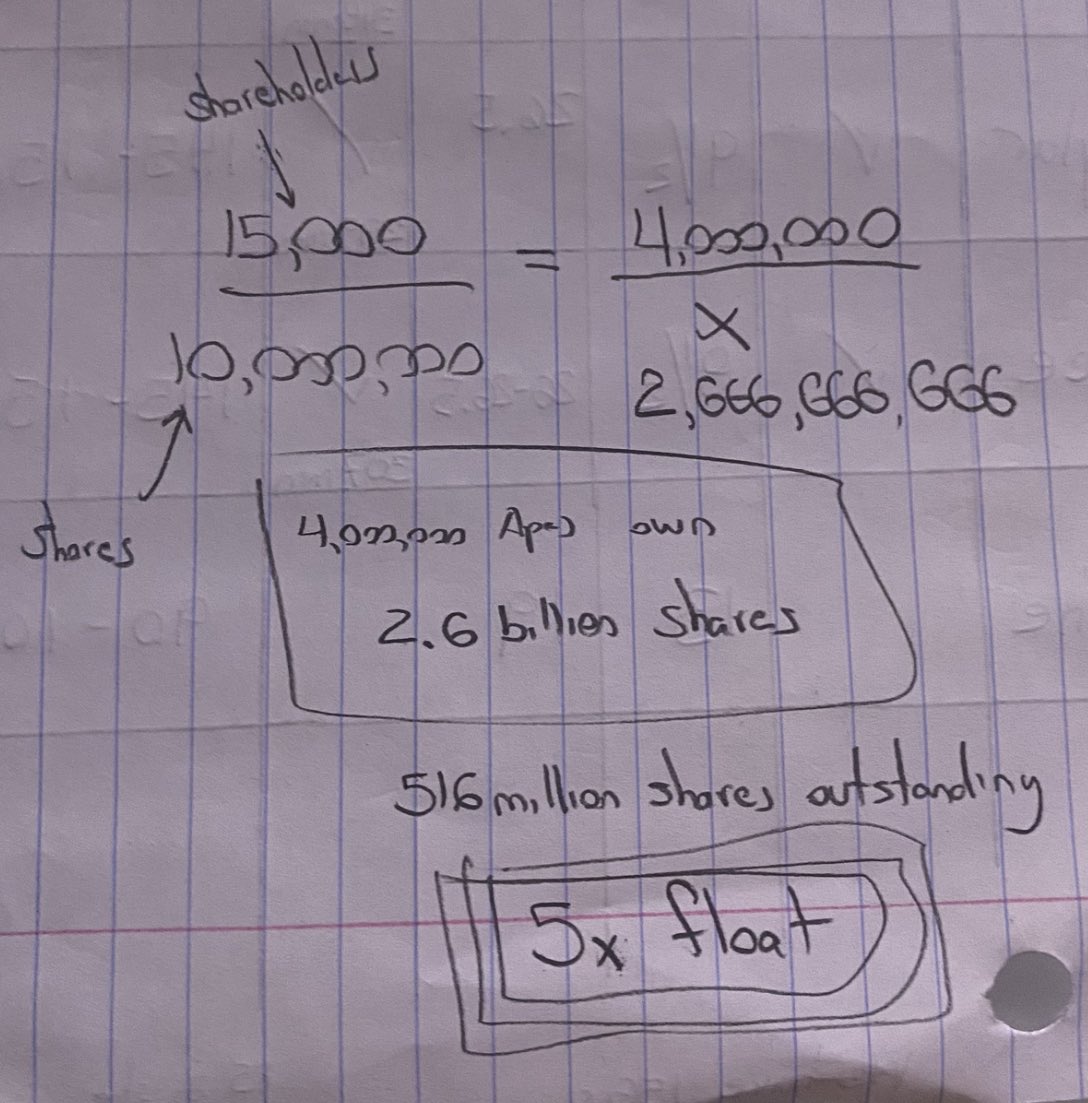 shareholders
15,000 = 4,000,000
10,000,000 x
2,666,666,666
shares
4,000,000 Apes own
2.6 billion shares
516 million shares outstanding
5x float